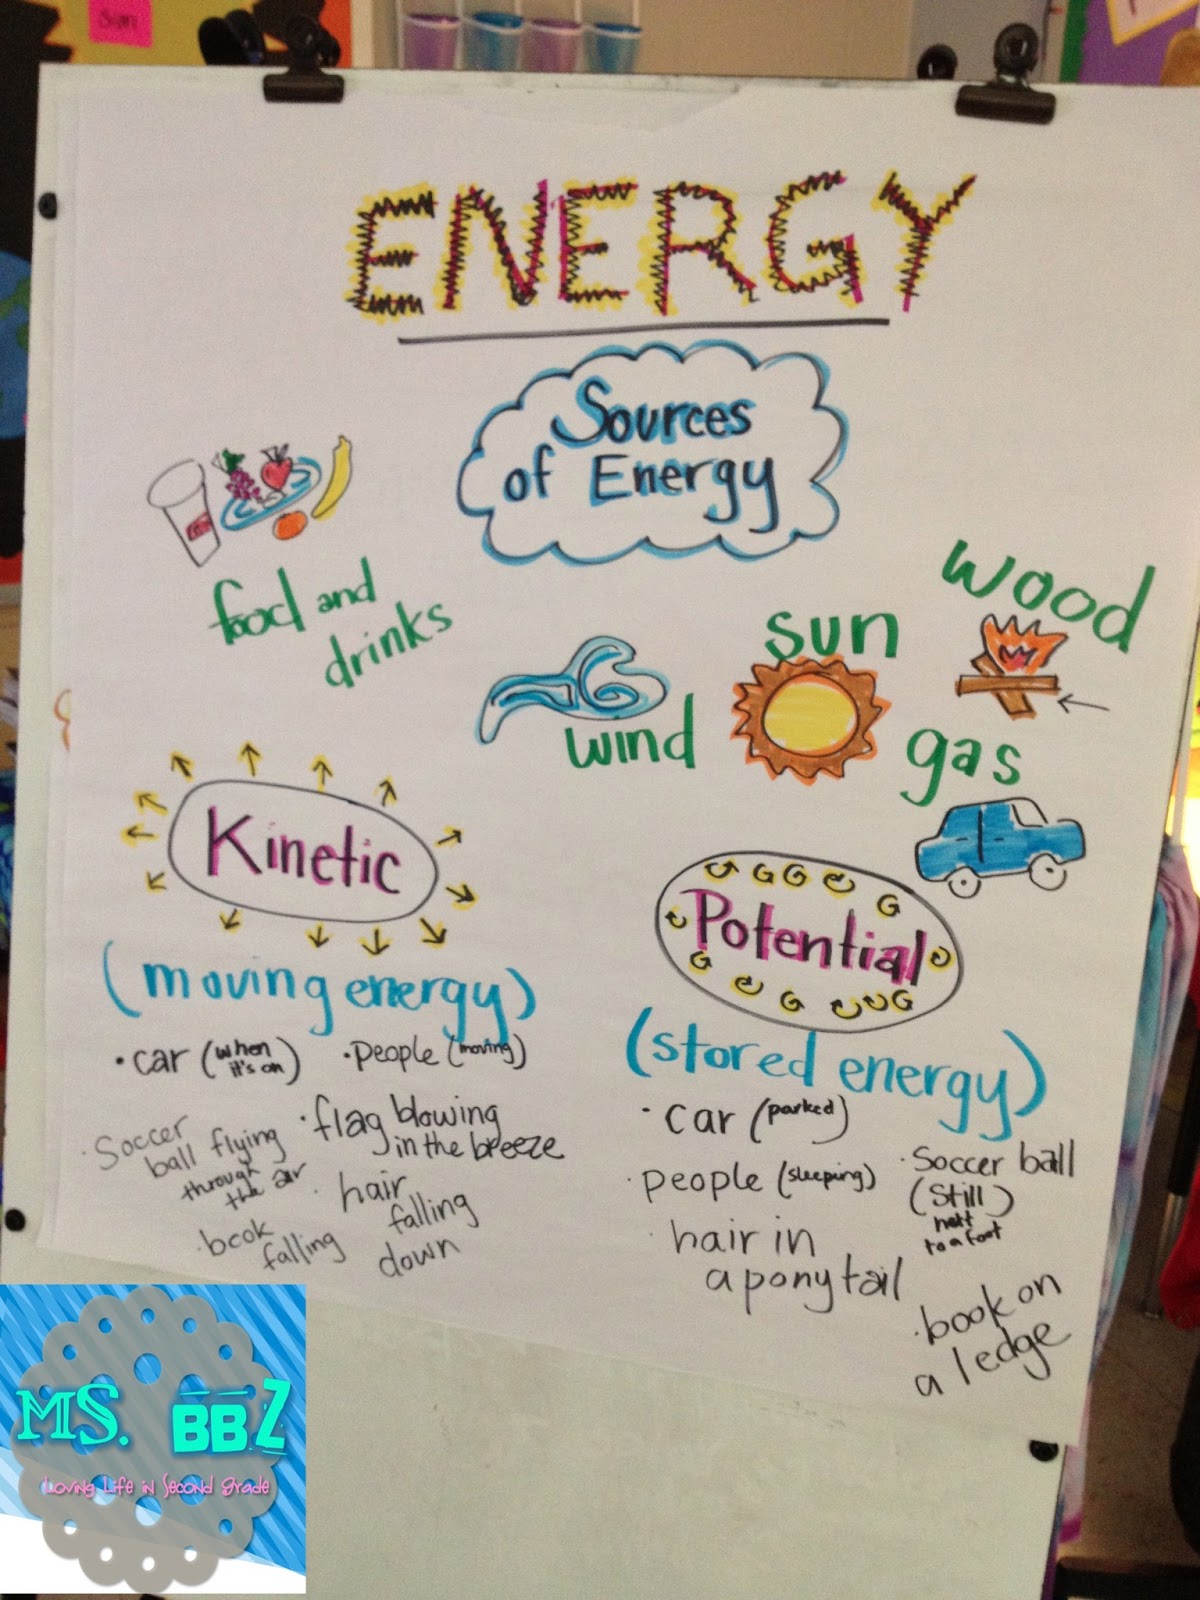 Sun
ENERGY
Sources
of Energy
food and
drinks
wind
sun
wood
gas
Kinetic
(moving energy)
• car (when
it's on)
• people (moving)
• Soccer
ball flying
through
the air
• flag blowing
in the breeze
• hair
falling
down
• book
falling
Potential
(stored energy)
• car (parked)
• people (sleeping)
• Soccer ball
(still)
next
to a foot
• hair in
a ponytail
• book on
a ledge
MS. BBZ
Loving Life in Second Grade